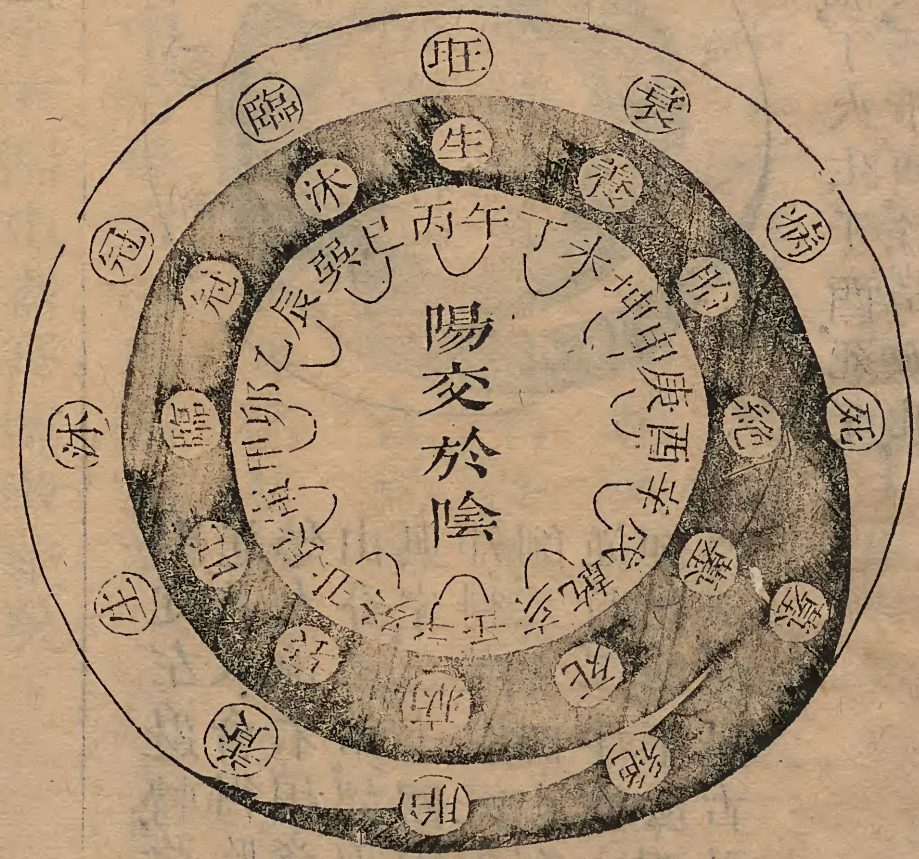 陽交於陰
丙午
丁未
坤申
庚酉
辛戌
乾亥
壬子
癸丑
艮寅
甲卯
乙辰
巽巳
生
養
胎
絶
墓
死
病
衰
旺
臨
冠
沐
旺
衰
病
死
墓
絶
胎
養
生
沐
冠
臨